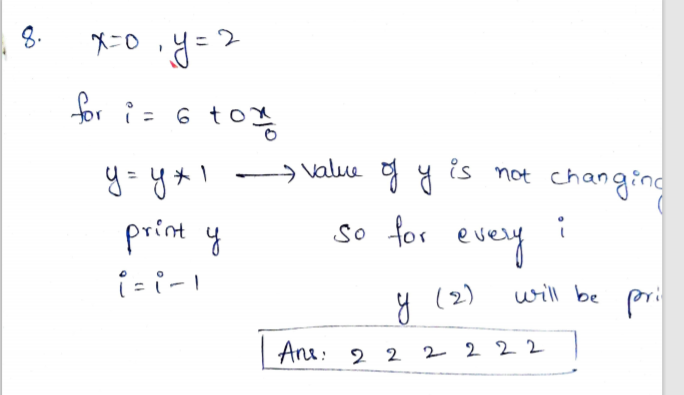 8. x=0, y=2
for i = 6 to x
0
y = y * 1 → value of y is not changing
print y so for every i
i = i - 1
y (2) will be pri
Ans: 2 2 2 2 2 2